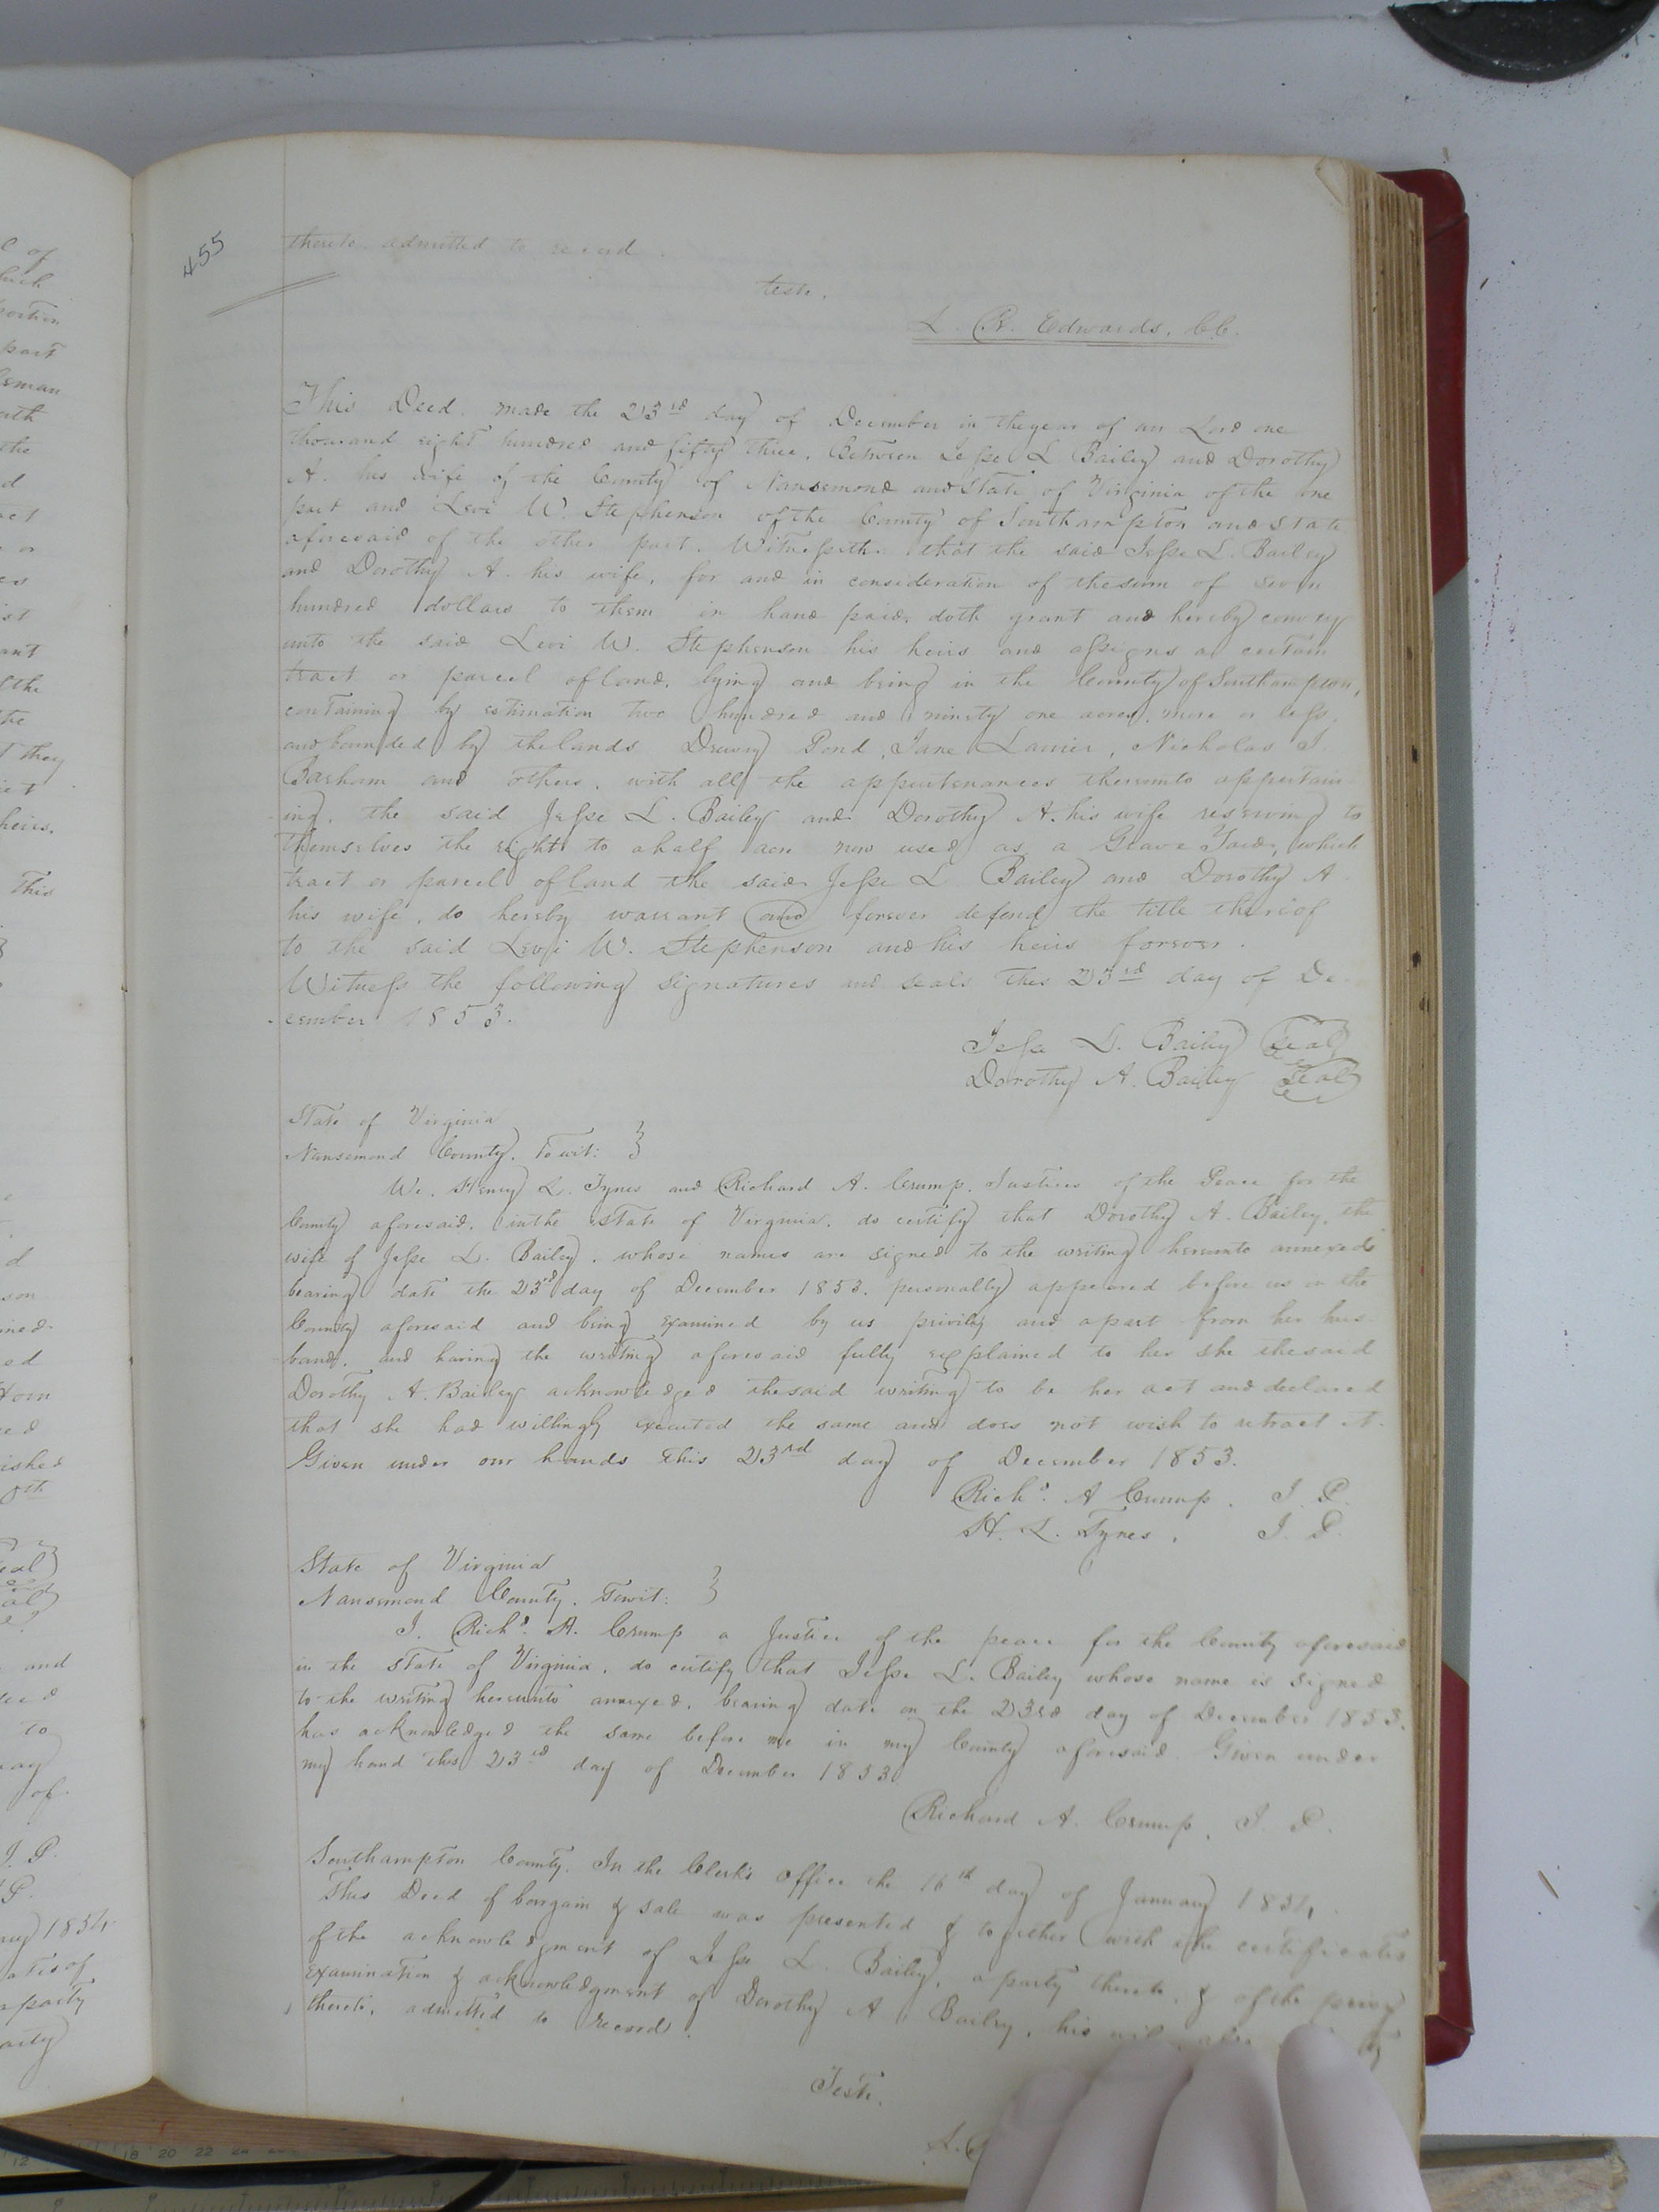 455
thereto admitted to record.
teste.
L. R. Edwards. CC.
This Deed made the 23rd day of December in the year of our Lord one
thousand eight hundred and fifty three. Between Jesse L Bailey and Dorothy
A. his wife of the County of Nansemond and State of Virginia of the one
part and Levi W. Stephenson of the County of Southampton and State
aforesaid of the other part. Witnesseth that the said Jesse L. Bailey
and Dorothy A. his wife, for and in consideration of the sum of seven
hundred dollars to them in hand paid, doth grant and hereby convey
unto the said Levi W. Stephenson his heirs and assigns a certain
tract or parcel of land, lying and being in the County of Southampton,
containing by estimation two hundred and ninety one acres, more or less,
and bounded by the lands Drewry Pond, Jane Lanier, Nicholas J.
Barham and others, with all the appurtenances thereunto appertain
ing. the said Jesse L. Bailey and Dorothy A. his wife reserving to
themselves the right to a half acre now used as a Grave Yard, which
tract or parcel of land the said Jesse L Bailey and Dorothy A
his wife, do hereby warrant and forever defend the title thereof
to the said Levi W. Stephenson and his heirs forever.
Witness the following signatures and seals this 23rd day of De
cember 1853.
Jesse L. Bailey Seal
Dorothy A. Bailey Seal
State of Virginia
Nansemond County. Towit: }
We, Henry L. Tynes and Richard A. Crump. Justices of the Peace for the
County aforesaid, in the State of Virginia, do certify that Dorothy A. Bailey, the
wife of Jesse L. Bailey, whose names are signed to the writing hereunto annexed
bearing date the 23rd day of December 1853. personally appeared before us in the
County aforesaid and being examined by us privily and apart from her hus
band, and having the writing aforesaid fully explained to her she the said
Dorothy A. Bailey acknowledged the said writing to be her act and declared
that she had willingly executed the same and does not wish to retract it.
Given under our hands this 23rd day of December 1853.
Richd. A Crump. J. P.
H. L. Tynes, J. P.
State of Virginia
Nansemond County. Towit: }
I. Richd. A. Crump a Justice of the peace for the County aforesaid
in the State of Virginia, do certify that Jesse L. Bailey whose name is signed
to the writing hereunto annexed, bearing date on the 23rd day of December 1853.
has acknowledged the same before me in my County aforesaid. Given under
my hand this 23rd day of December 1853
Richard A. Crump, J. P.
Southampton County. In the Clerk's Office the 16th day of January 1854.
This Deed of bargain & sale was presented & together with the certificates
of the acknowledgment of Jesse L. Bailey, a party thereto, & of the privy
examination & acknowledgment of Dorothy A. Bailey, his wife, also
thereto, admitted to record.
Teste.
L.